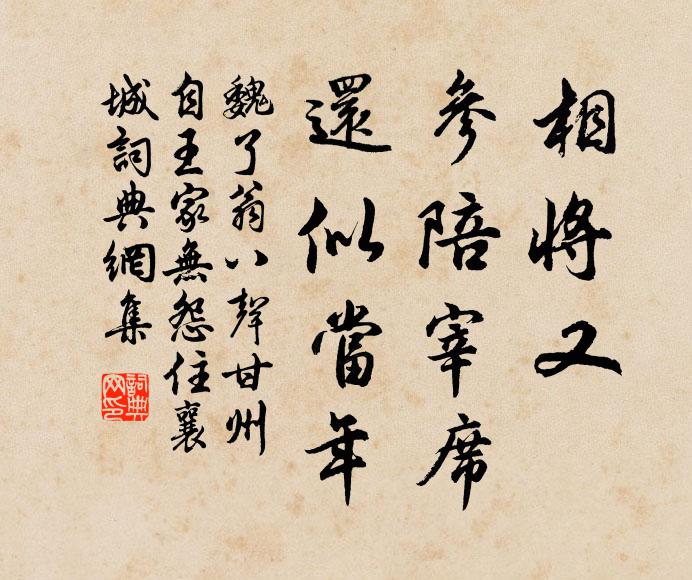 相將又
參陪宰席
還似當年
魏了翁八聲甘州
自王家無怨住襄
城詞典網集
詞典网印